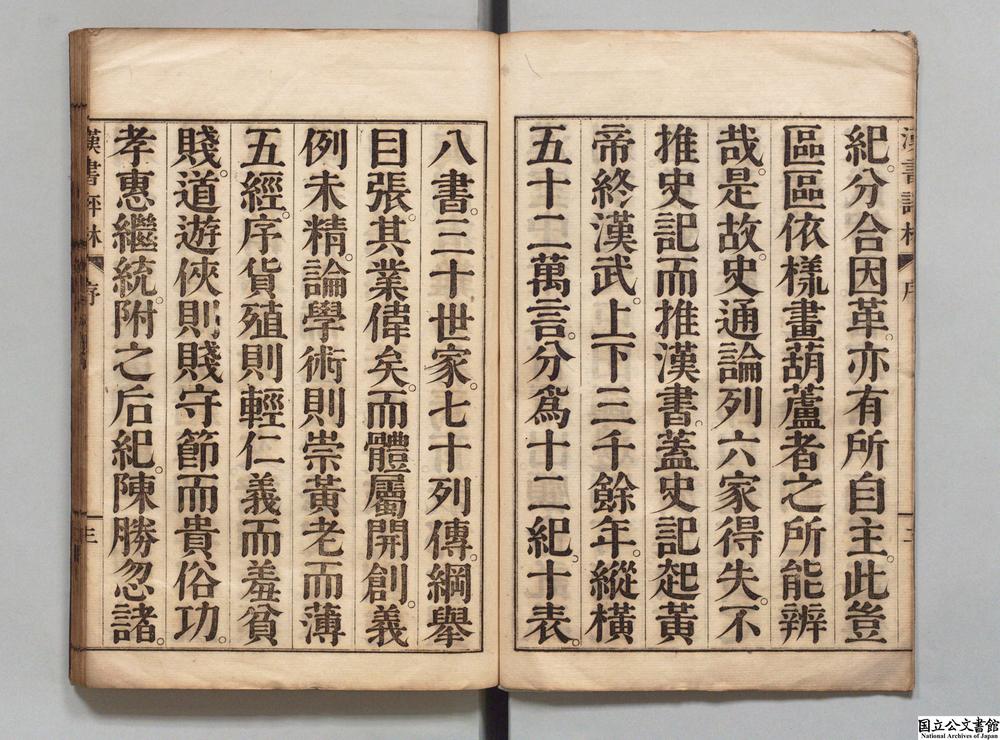 紀。分合因革。亦有所自主。此豈
區區依樣畫葫蘆者之所能辨
哉。是故。史通論列六家得失。不
推史記而推漢書。蓋史記起黃
帝終漢武。上下三千餘年。縱橫
五十二萬言。分爲十二紀。十表。
八書。三十世家。七十列傳。綱舉
目張。其業偉矣。而體屬開創。義
例未精。論學術則崇黃老而薄
五經。序貨殖則輕仁義而羞貧
賤。道遊俠則賤守節而貴俗功。
孝惠繼統。附之后紀。陳勝忽諸。
漢書評林 序 三
国立公文書館
National Archives of Japan